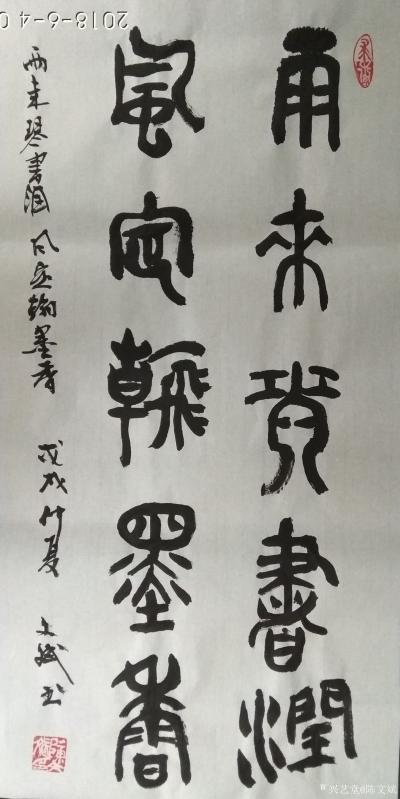 雨來琴書潤
風定翰墨香
雨来琴書润 风定翰墨香 戊戌仲夏 文斌书
2018-6-4 0
兴艺堂@陈文斌